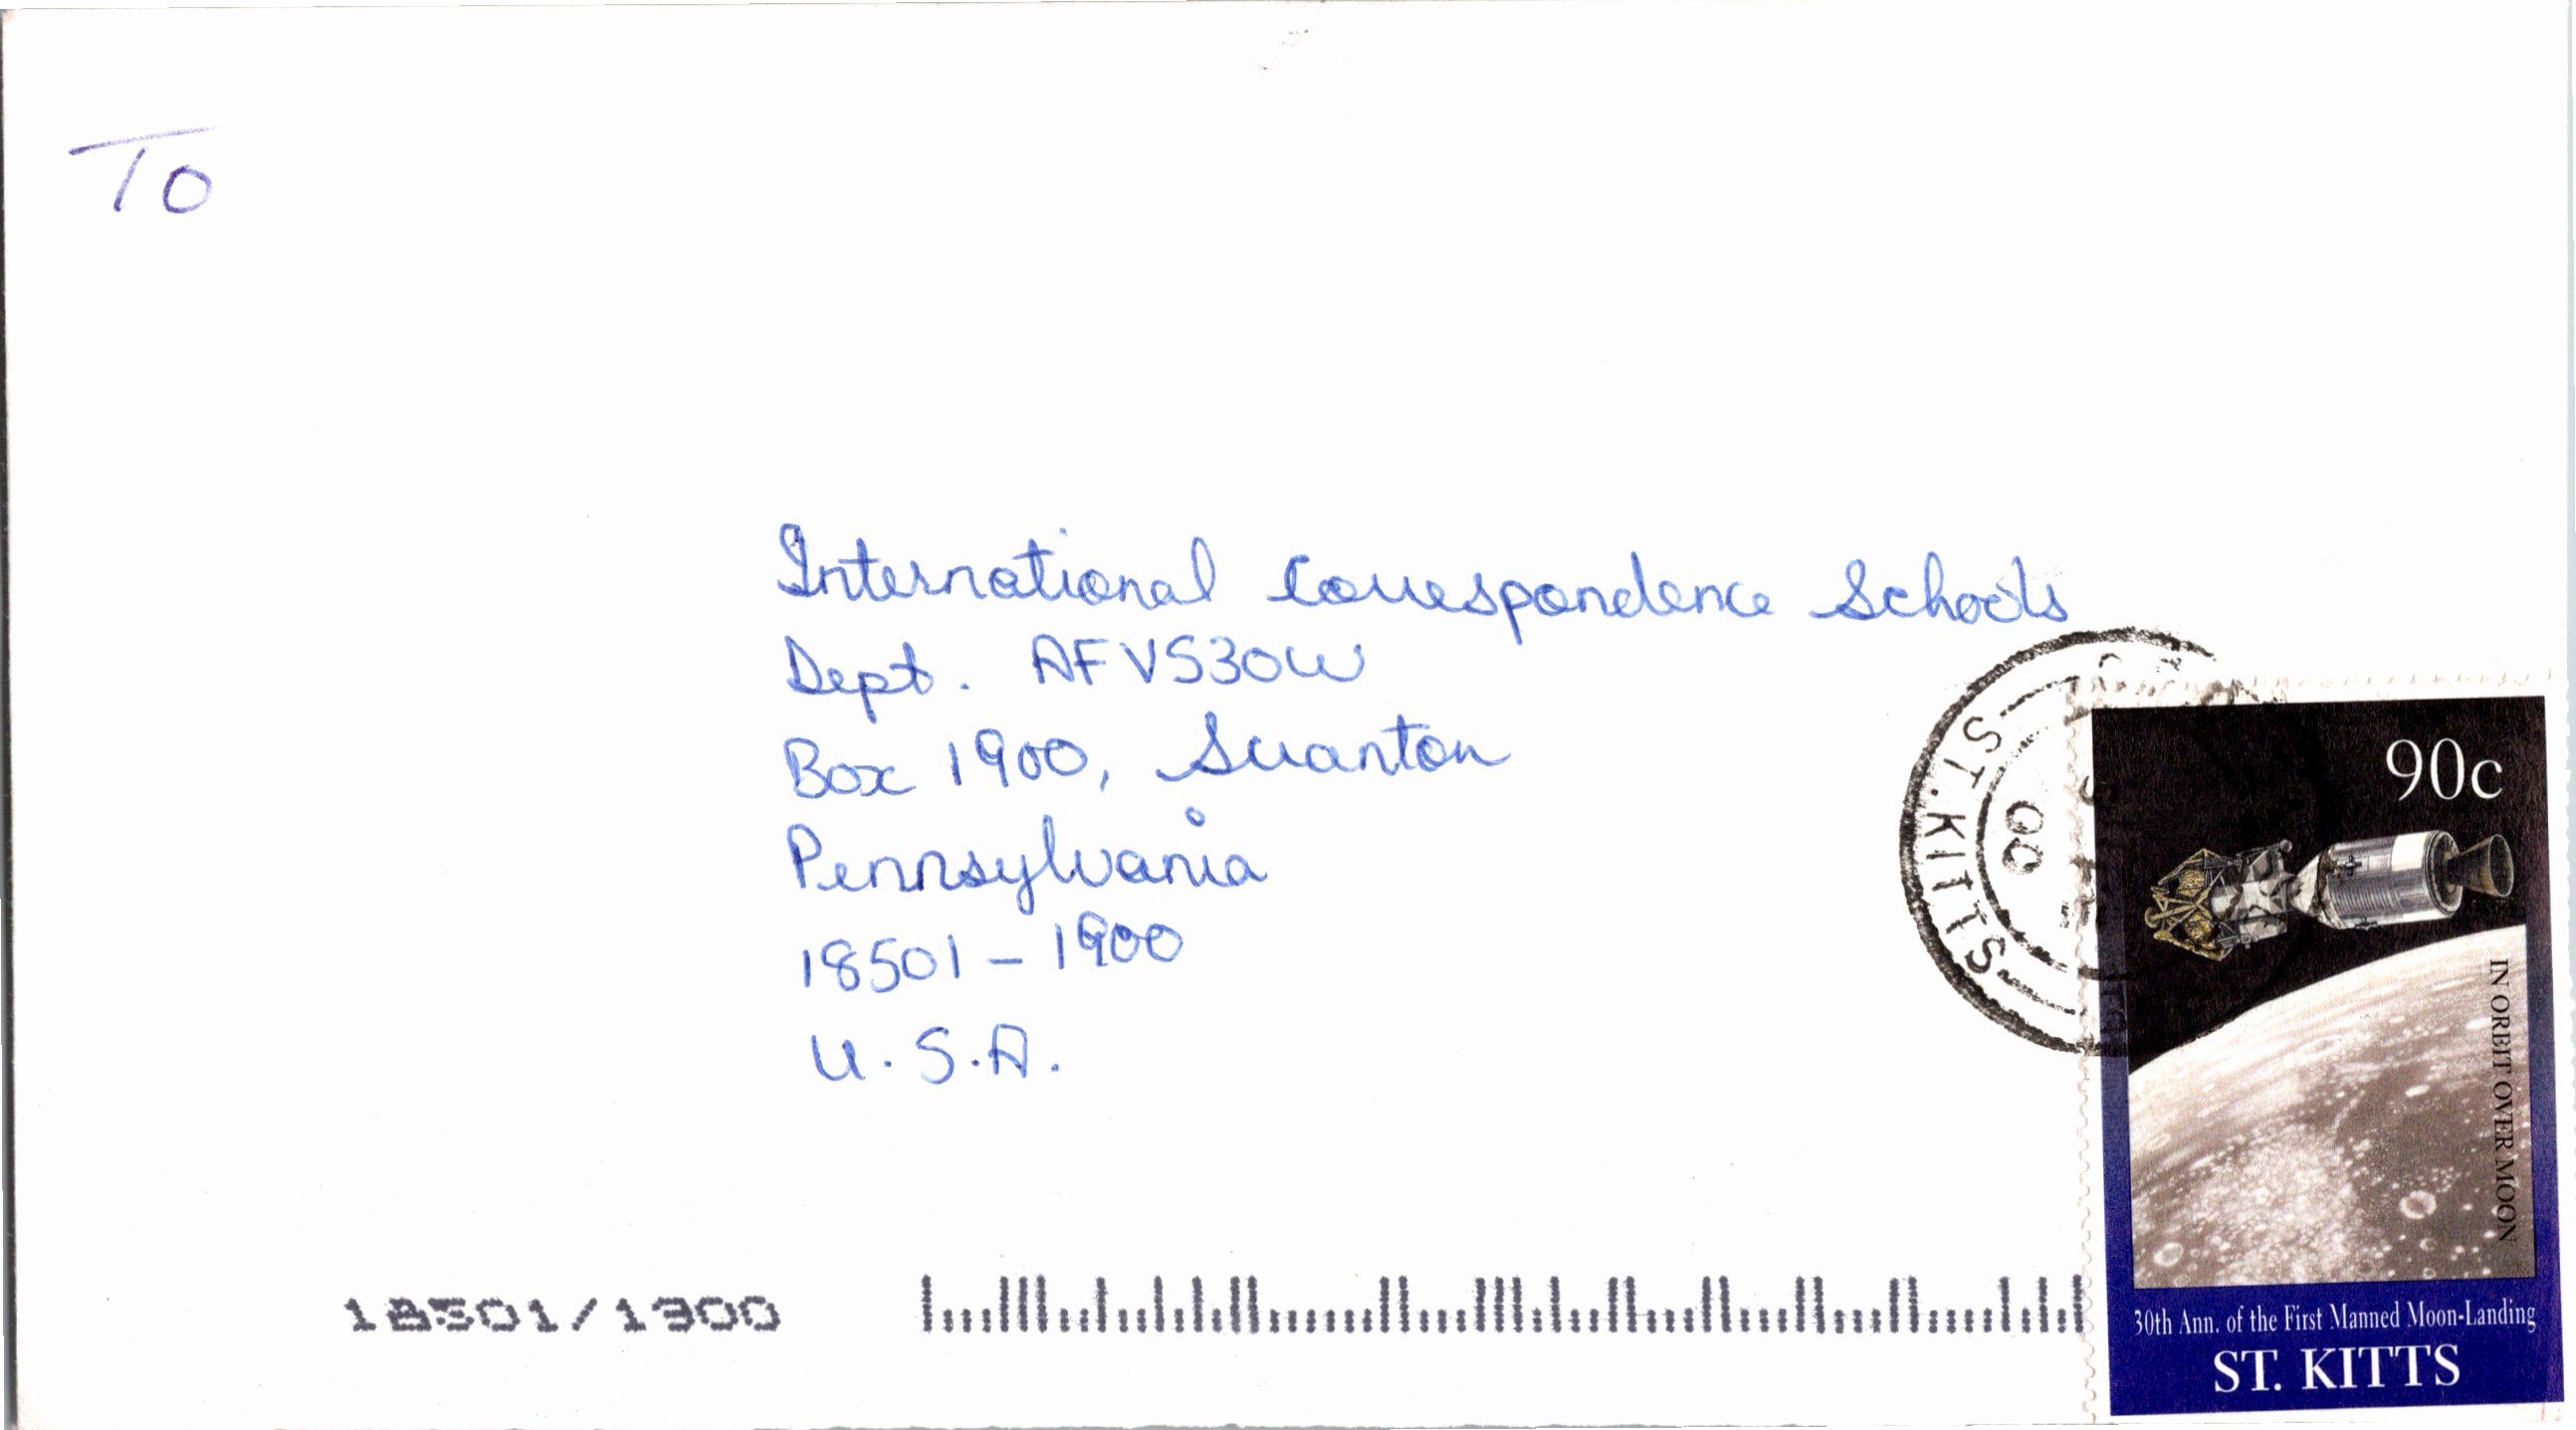 To
International Correspondence Schools
Dept. AFVS30W
Box 1900, Scranton
Pennsylvania
18501-1900
U.S.A.
ST. KITTS
00
90c
IN ORBIT OVER MOON
30th Ann. of the First Manned Moon-Landing
ST. KITTS
18501/1900